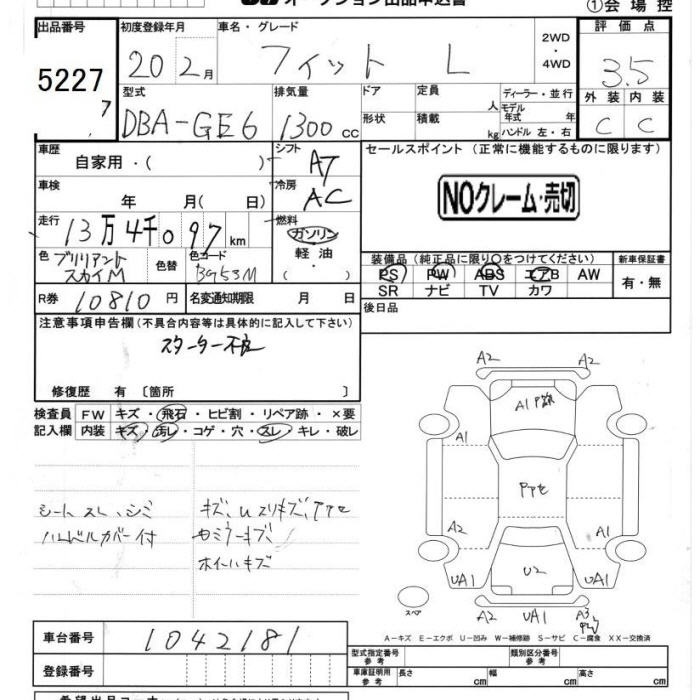 オークション出品申込書
①会場控
出品番号
5227
7
初度登録年月
20年2月
車名・グレード
フィット L
2WD
・
4WD
評価点
3.5
型式
DBA-GE6
排気量
1300cc
ドア
形状
定員
人
積載
kg
ディーラー・並行
モデル
年式 年
ハンドル 左・右
外装 内装
C C
車歴
自家用・( )
シフト
AT
セールスポイント (正常に機能するものに限ります)
NOクレーム・売切
車検
年 月(日)
冷房
AC
走行
13万4千097km
燃料
ガソリン
軽油
・
( )
色 ブリリアント
スカイM
色替
色コード
BG53M
装備品(純正品に限り○をつけてください)
新車保証書
PS PW ABS エアB AW
SR ナビ TV カワ
有・無
R券 10810円
名変通知期限 月 日
後日品
注意事項申告欄(不具合内容等は具体的に記入して下さい)
スターター不良
修復歴 有〔箇所 〕
検査員
記入欄
FW キズ・飛石・ヒビ割・リペア跡・×要
内装 キズ・汚レ・コゲ・穴・スレ・キレ・破レ
シート スレ、シミ
ハンドルカバー付
キズ、Uスリキズ、PTセ
Rミラーキズ
ホイールキズ
A2 A2
A1 P跡
A1
PTセ
A2 A1
U2
UA1 UA1
スペア
A2 UA1 A3
A-キズ E-エクボ U-凹み W-補修跡 S-サビ C-腐食 XX-交換済
車台番号
1042181
登録番号
型式指定番号
参考
類別区分番号
参考
車庫証明用
参考
長さ cm
幅 cm
高さ cm